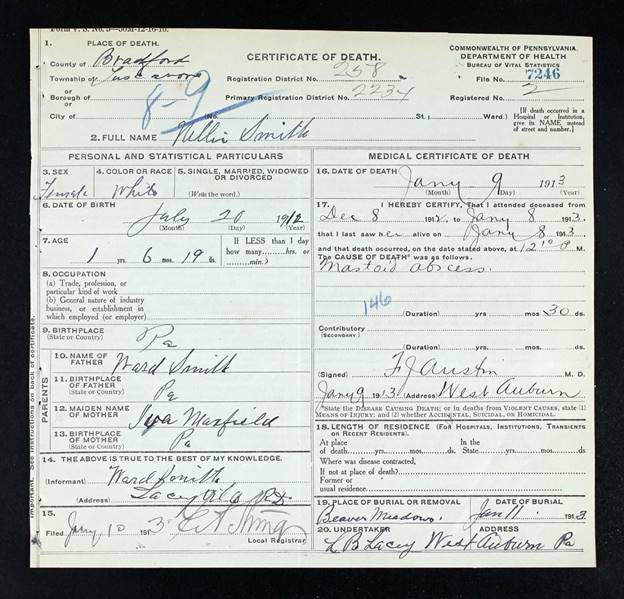 Form V. S. No. 5—
1. PLACE OF DEATH.
County of Bradford
Township of Tuscarora
or
Borough of
or
City of
8-9
CERTIFICATE OF DEATH.
Registration District No. 258
Primary Registration District No. 2234
No. St.; Ward.)
COMMONWEALTH OF PENNSYLVANIA.
DEPARTMENT OF HEALTH
BUREAU OF VITAL STATISTICS
File No. 7246
Registered No. 2
[If death occurred in a
Hospital or Institution,
give its NAME instead
of street and number.]
2. FULL NAME Nellie Smith
PERSONAL AND STATISTICAL PARTICULARS
3. SEX
Female
4. COLOR OR RACE
White
5. SINGLE, MARRIED, WIDOWED
OR DIVORCED
(Write the word.)
6. DATE OF BIRTH
July 20 1912
(Month) (Day) (Year)
7. AGE
1 yrs. 6 mos. 19 ds.
If LESS than 1 day
how many....hrs. or
min.?
8. OCCUPATION
(a) Trade, profession, or
particular kind of work
(b) General nature of industry
business, or establishment in
which employed (or employer)
9. BIRTHPLACE
(State or Country)
Pa
PARENTS
10. NAME OF
FATHER
Ward Smith
11. BIRTHPLACE
OF FATHER
(State or Country)
Pa
12. MAIDEN NAME
OF MOTHER
Iva Maxfield
13. BIRTHPLACE
OF MOTHER
(State or Country)
Pa
14. THE ABOVE IS TRUE TO THE BEST OF MY KNOWLEDGE.
(Informant) Ward Smith
(Address)
15.
Filed Jany 10 1913
Local Registrar
Important. See instructions on back of certificate.
MEDICAL CERTIFICATE OF DEATH
16. DATE OF DEATH
Jany 9 1913
(Month) (Day) (Year)
17. I HEREBY CERTIFY, That I attended deceased from
Dec 8 1912, to Jany 8 1913.
that I last saw her alive on Jany 8 1913.
and that death occurred, on the date stated above, at M.
The CAUSE OF DEATH* was as follows:
Mastoid abscess.
146
(Duration) yrs. mos. 30 ds.
Contributory
(SECONDARY)
(Duration) yrs. mos. ds.
(Signed) F J Austin M. D.
Jany 9 1913 (Address) West Auburn
*State the DISEASE CAUSING DEATH; or in deaths from VIOLENT CAUSES, state (1)
MEANS OF INJURY; and (2) whether ACCIDENTAL, SUICIDAL, or HOMICIDAL.
18. LENGTH OF RESIDENCE (FOR HOSPITALS, INSTITUTIONS, TRANSIENTS
OR RECENT RESIDENTS).
At place In the
of death yrs. mos. ds. State yrs. mos. ds.
Where was disease contracted,
If not at place of death?
Former or
usual residence
19. PLACE OF BURIAL OR REMOVAL
Beaver Meadows.
DATE OF BURIAL
Jan 11. 1913
20. UNDERTAKER
L B Lacey
ADDRESS
West Auburn Pa